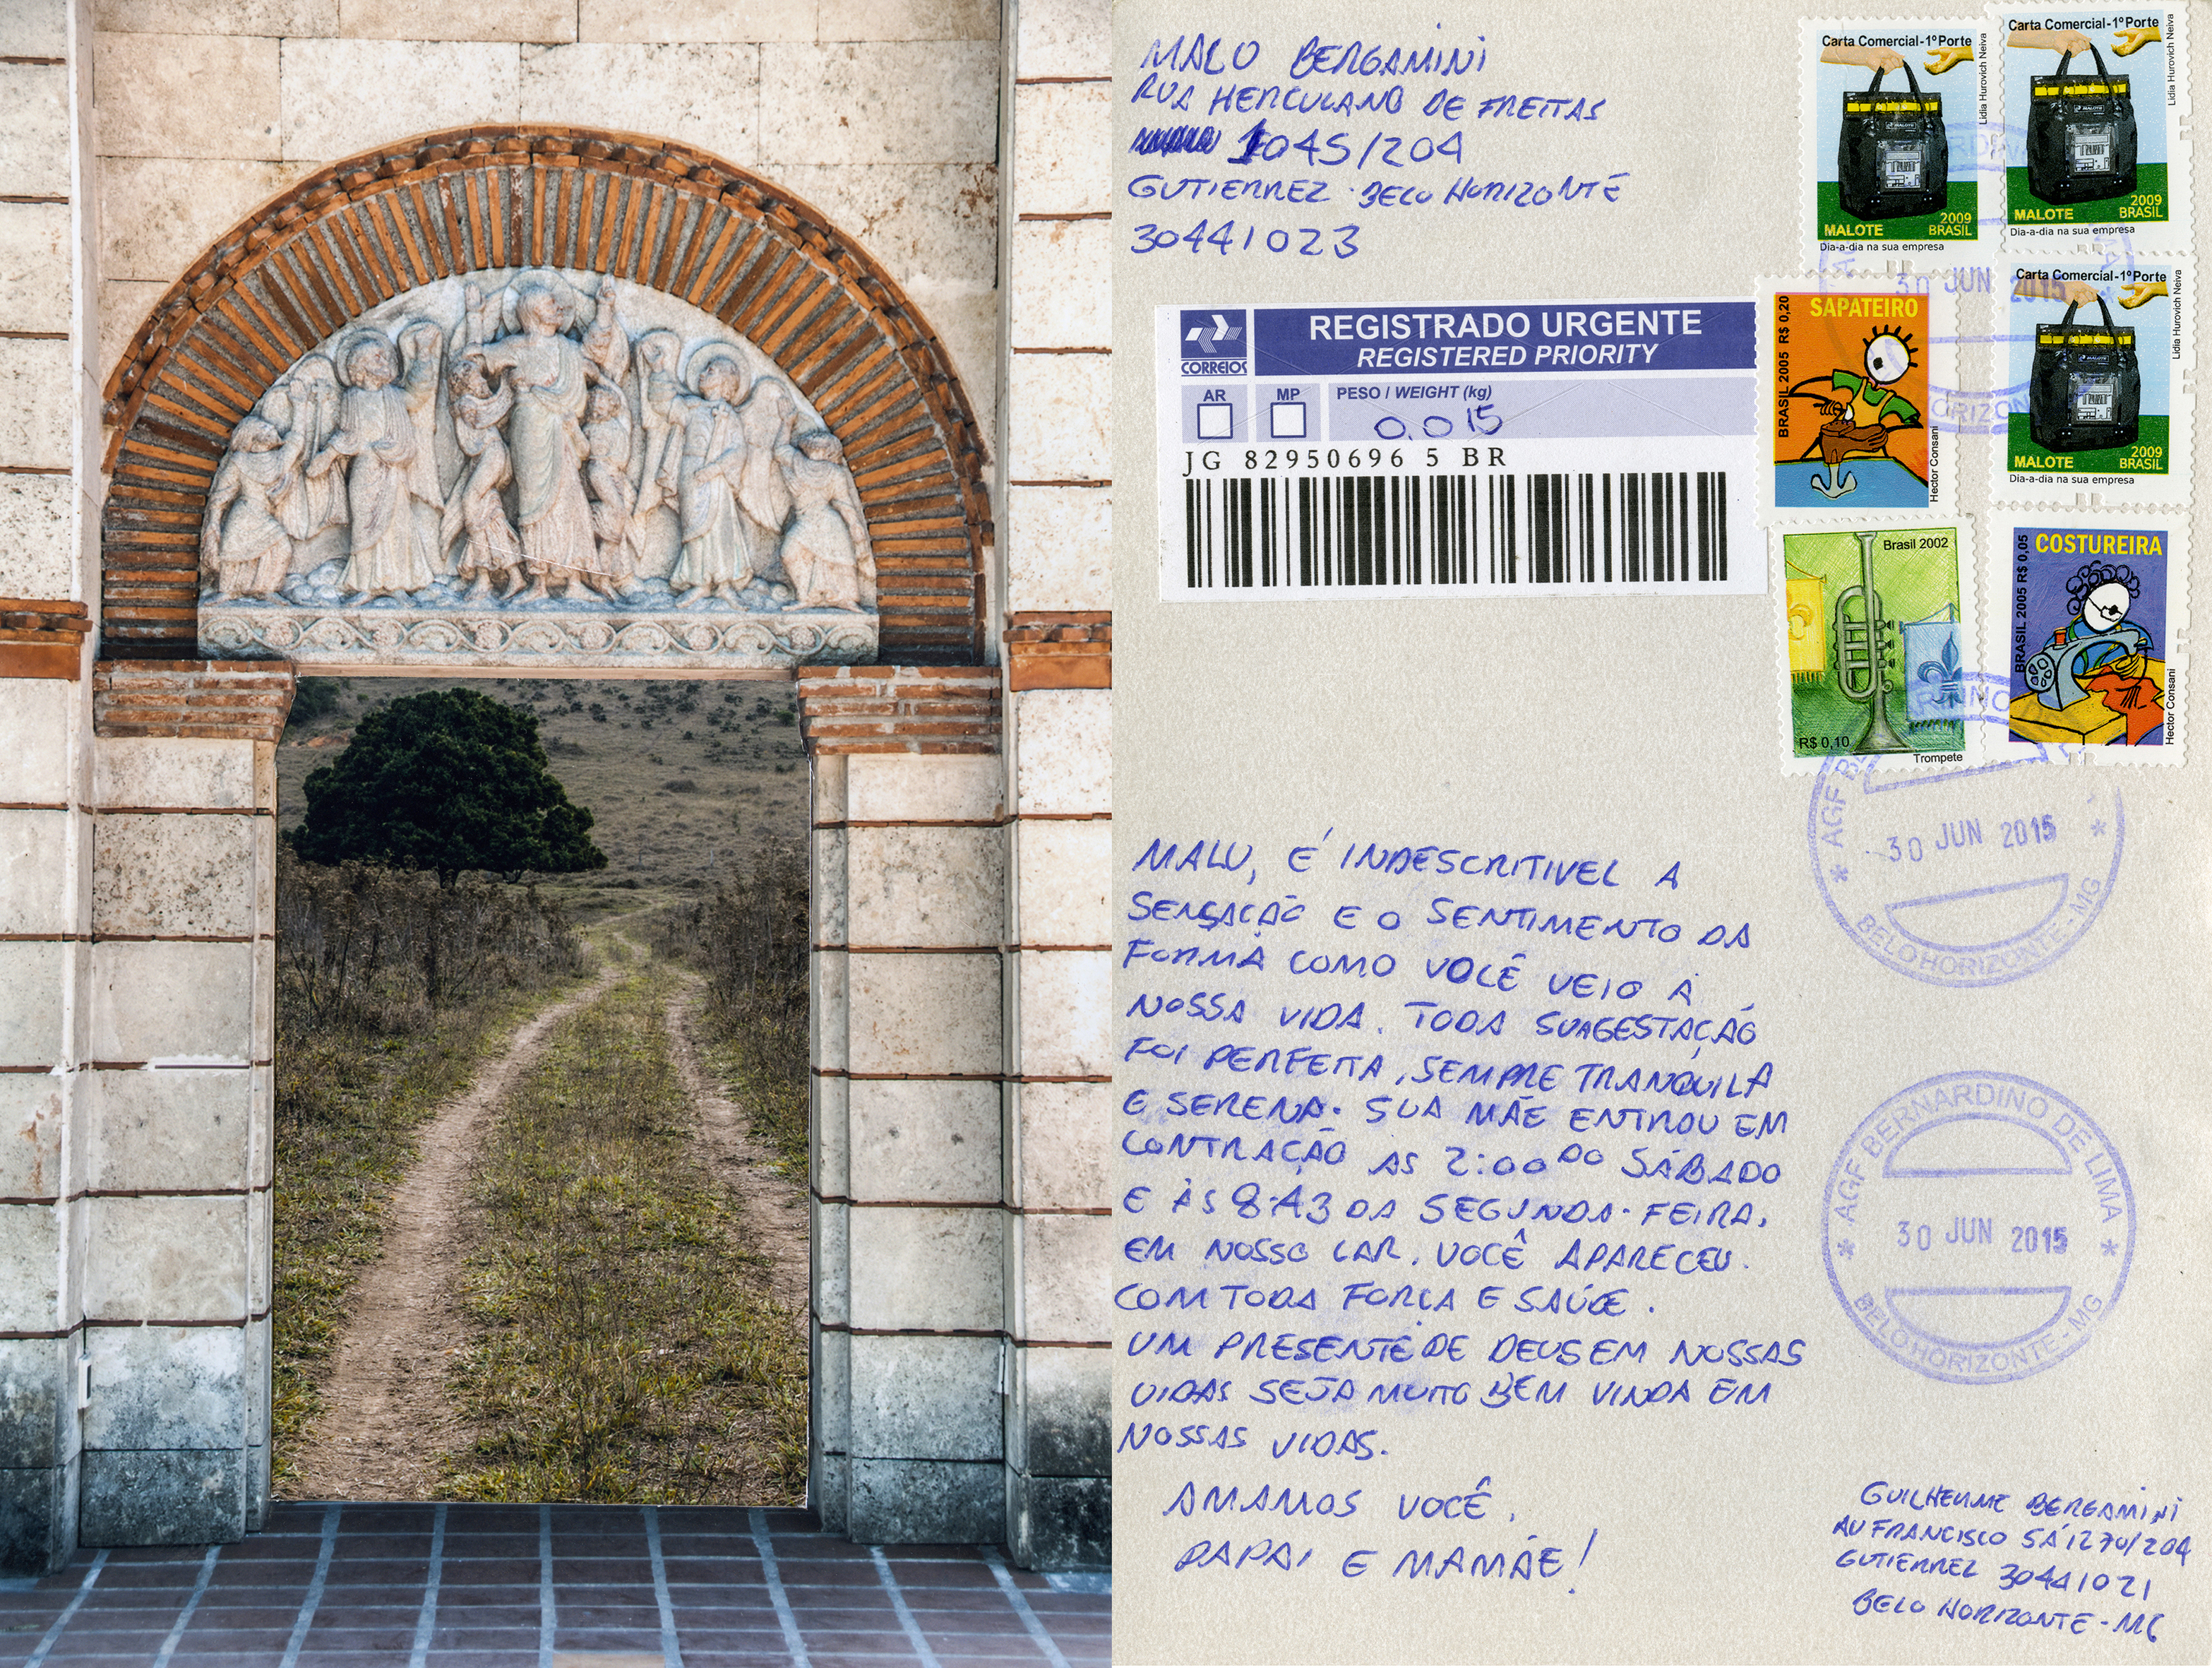 MALU BERGAMINI
RUA HERCULANO DE FREITAS
1045/204
GUTIERREZ - BELO HORIZONTE
30441023
Carta Comercial-1º Porte
Lidia Hurovich Neiva
MALOTE
2009
BRASIL
Dia-a-dia na sua empresa
Carta Comercial-1º Porte
Lidia Hurovich Neiva
MALOTE
2009
BRASIL
Dia-a-dia na sua empresa
30 JUN 2015
CORREIOS
REGISTRADO URGENTE
REGISTERED PRIORITY
AR
MP
PESO / WEIGHT (kg)
0.015
JG 82950696 5 BR
SAPATEIRO
BRASIL 2005 R$ 0,20
Hector Consani
Carta Comercial-1º Porte
Lidia Hurovich Neiva
MALOTE
2009
BRASIL
Dia-a-dia na sua empresa
Brasil 2002
R$ 0,10
Trompete
COSTUREIRA
BRASIL 2005 R$ 0,05
Hector Consani
30 JUN 2015
BELO HORIZONTE - MG
MALU, É INDESCRITIVEL A
SENSAÇÃO E O SENTIMENTO DA
FORMA COMO VOCÊ VEIO À
NOSSA VIDA. TODA SUA GESTAÇÃO
FOI PERFEITA, SEMPRE TRANQUILA
E SERENA. SUA MÃE ENTROU EM
CONTRAÇÃO AS 2:00 DO SÁBADO
E ÀS 8:43 DA SEGUNDA-FEIRA,
EM NOSSO LAR, VOCÊ APARECEU.
COM TODA FORÇA E SAÚDE.
UM PRESENTE DE DEUS EM NOSSAS
VIDAS SEJA MUITO BEM VINDA EM
NOSSAS VIDAS.
AMAMOS VOCÊ,
PAPAI E MAMÃE!
AGF BERNARDINO DE LIMA
30 JUN 2015
BELO HORIZONTE - MG
GUILHERME BERGAMINI
AV FRANCISCO SÁ 1270/204
GUTIERREZ 30441021
BELO HORIZONTE - MG